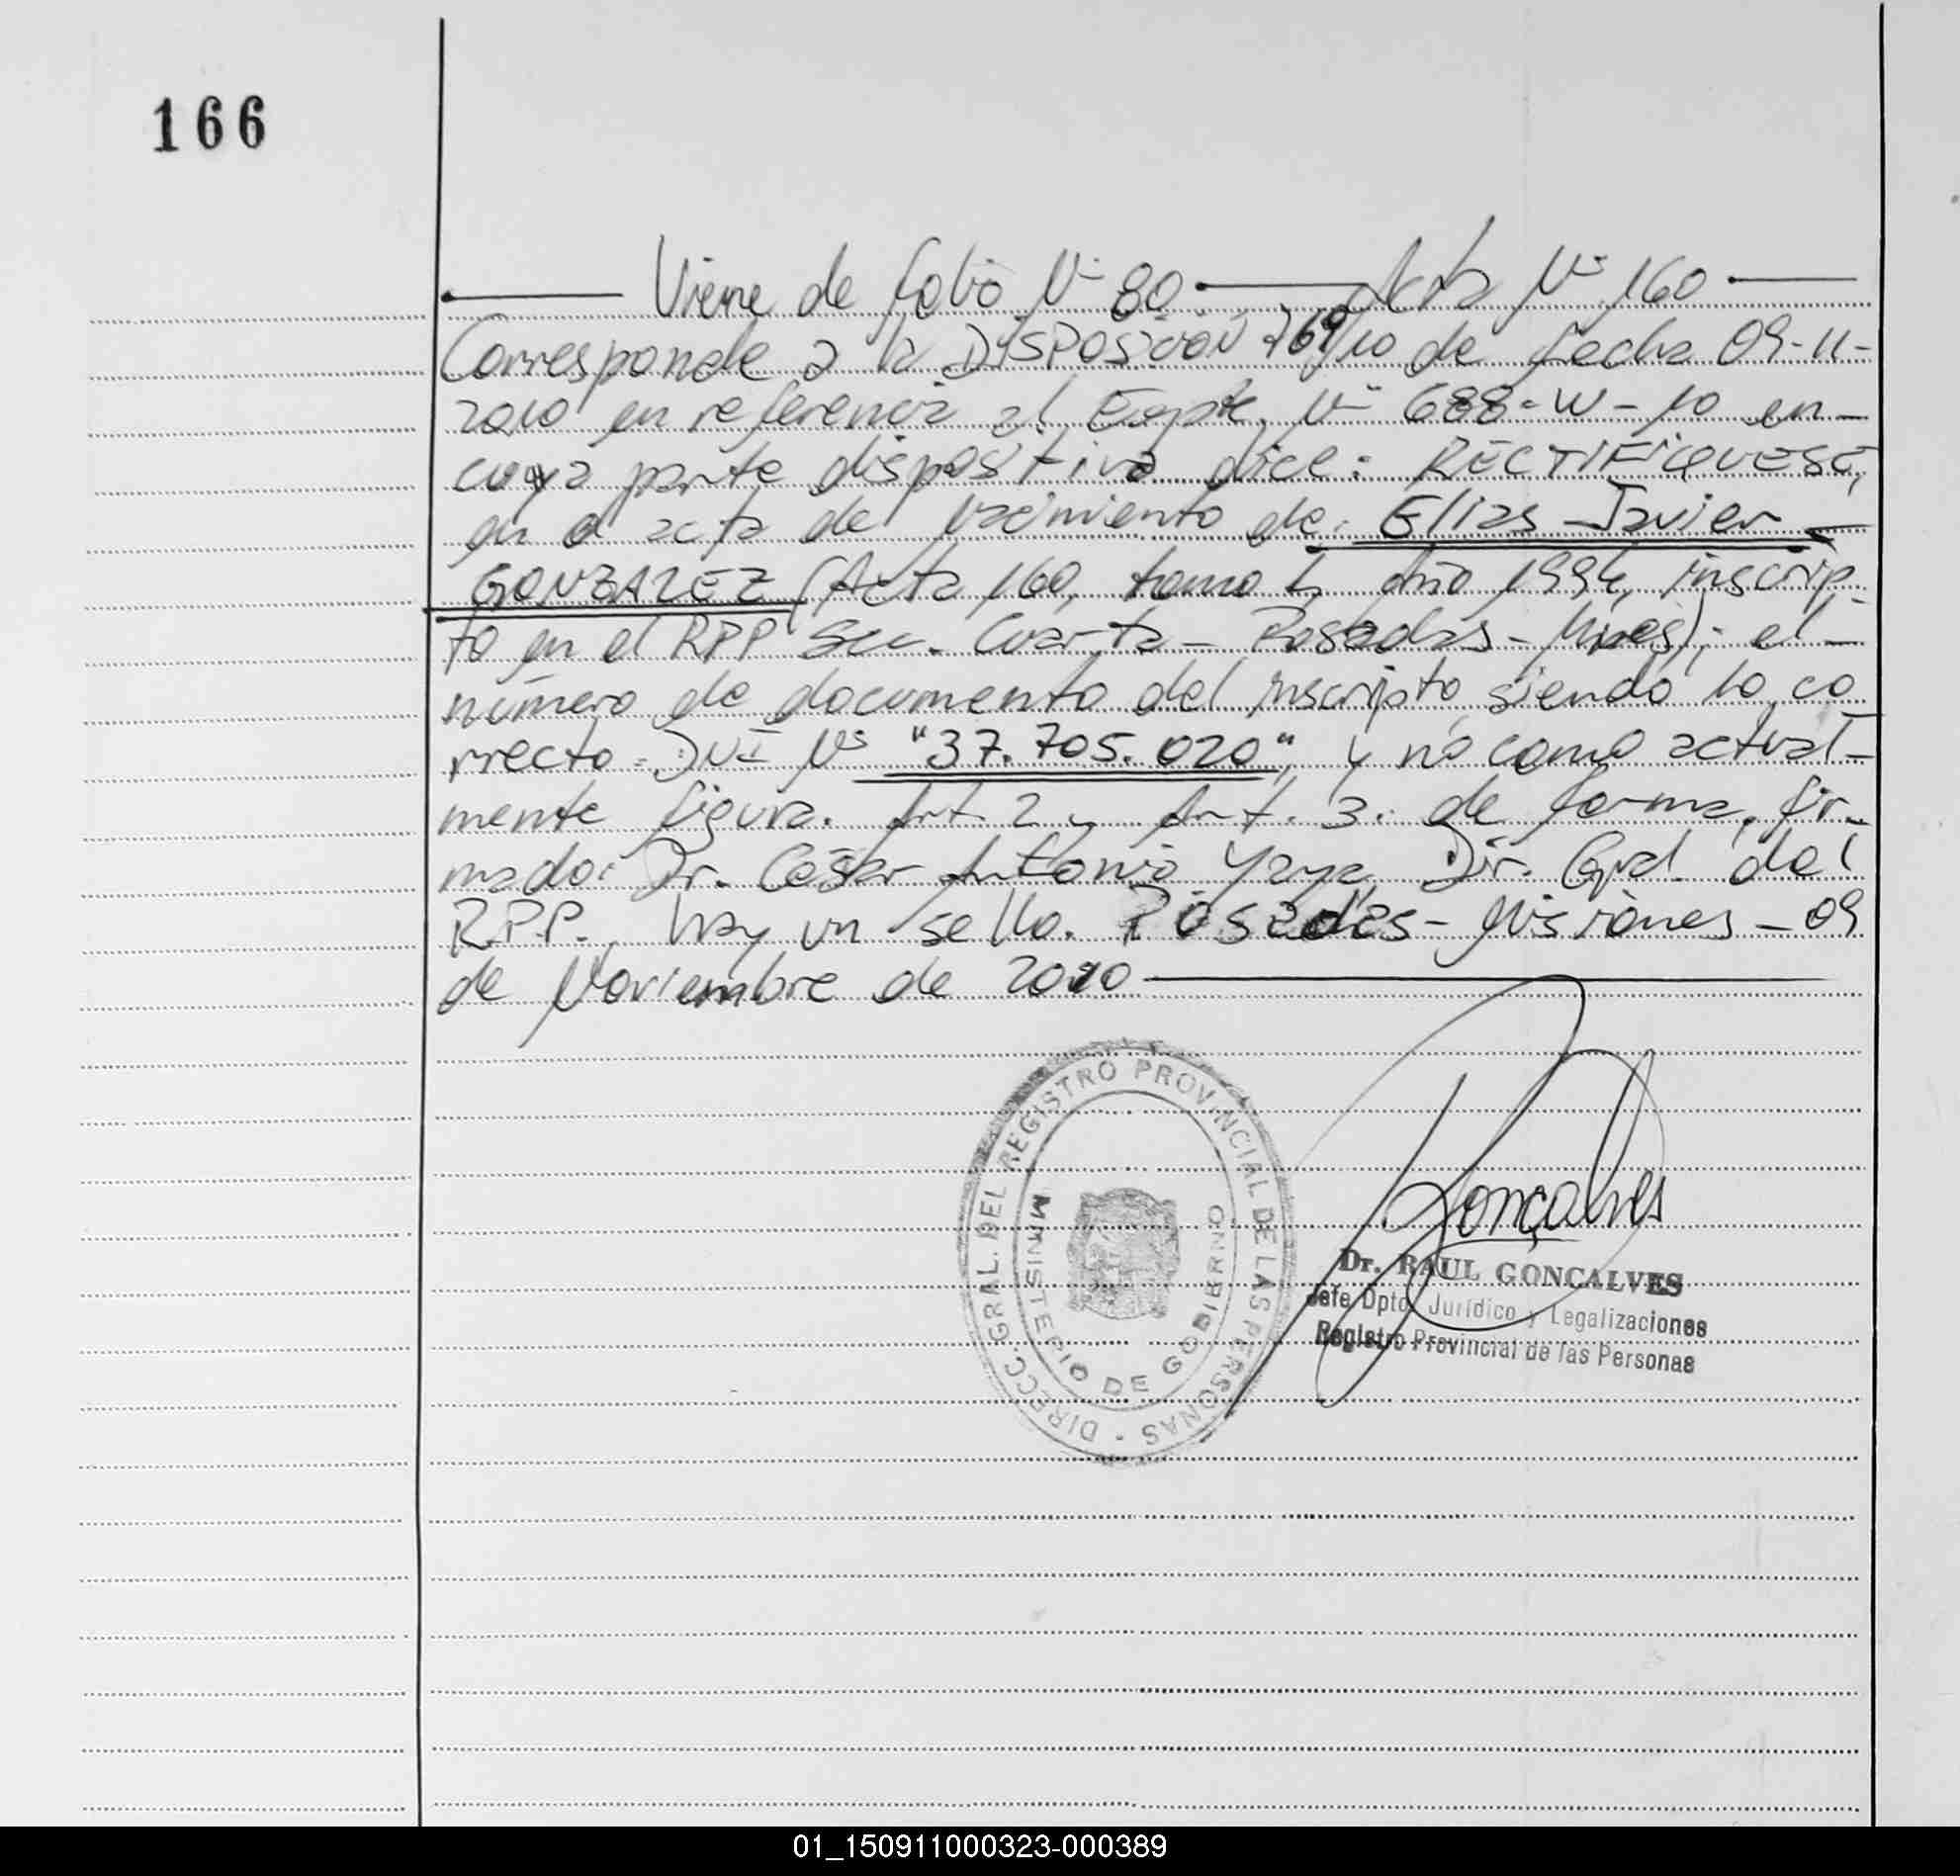 166
Viene de folio Nº 80 — Acta Nº 160 —
Corresponde a la DISPOSICIÓN 769/10 de fecha 09-11-
2010 en referencia al Expte. Nº 688-W-10 en-
cuya parte dispositiva dice: RECTIFIQUESE,
en el acta de nacimiento de: Elias Javier —
GONZALEZ (Acta 160, tomo I, Año 1994, inscrip-
to en el RPP Sec. Cuarta - Posadas - Mnes); el -
número de documento del inscripto, siendo lo co
rrecto: DNI Nº "37.705.020", y no como actual-
mente figura. Art. 2 y Art. 3. de forma, fir-
mado: Dr. César Antonio Yaya, Dir. Gral. del
R.P.P., hay un sello. Posadas - Misiones - 09
de Noviembre de 2010 —
DIRECC. GRAL. DEL REGISTRO PROVINCIAL DE LAS PERSONAS -
MINISTERIO DE GOBIERNO
Gonçalves
Dr. RAUL GONCALVES
Jefe Dpto. Jurídico y Legalizaciones
Registro Provincial de las Personas
01_150911000323-000389